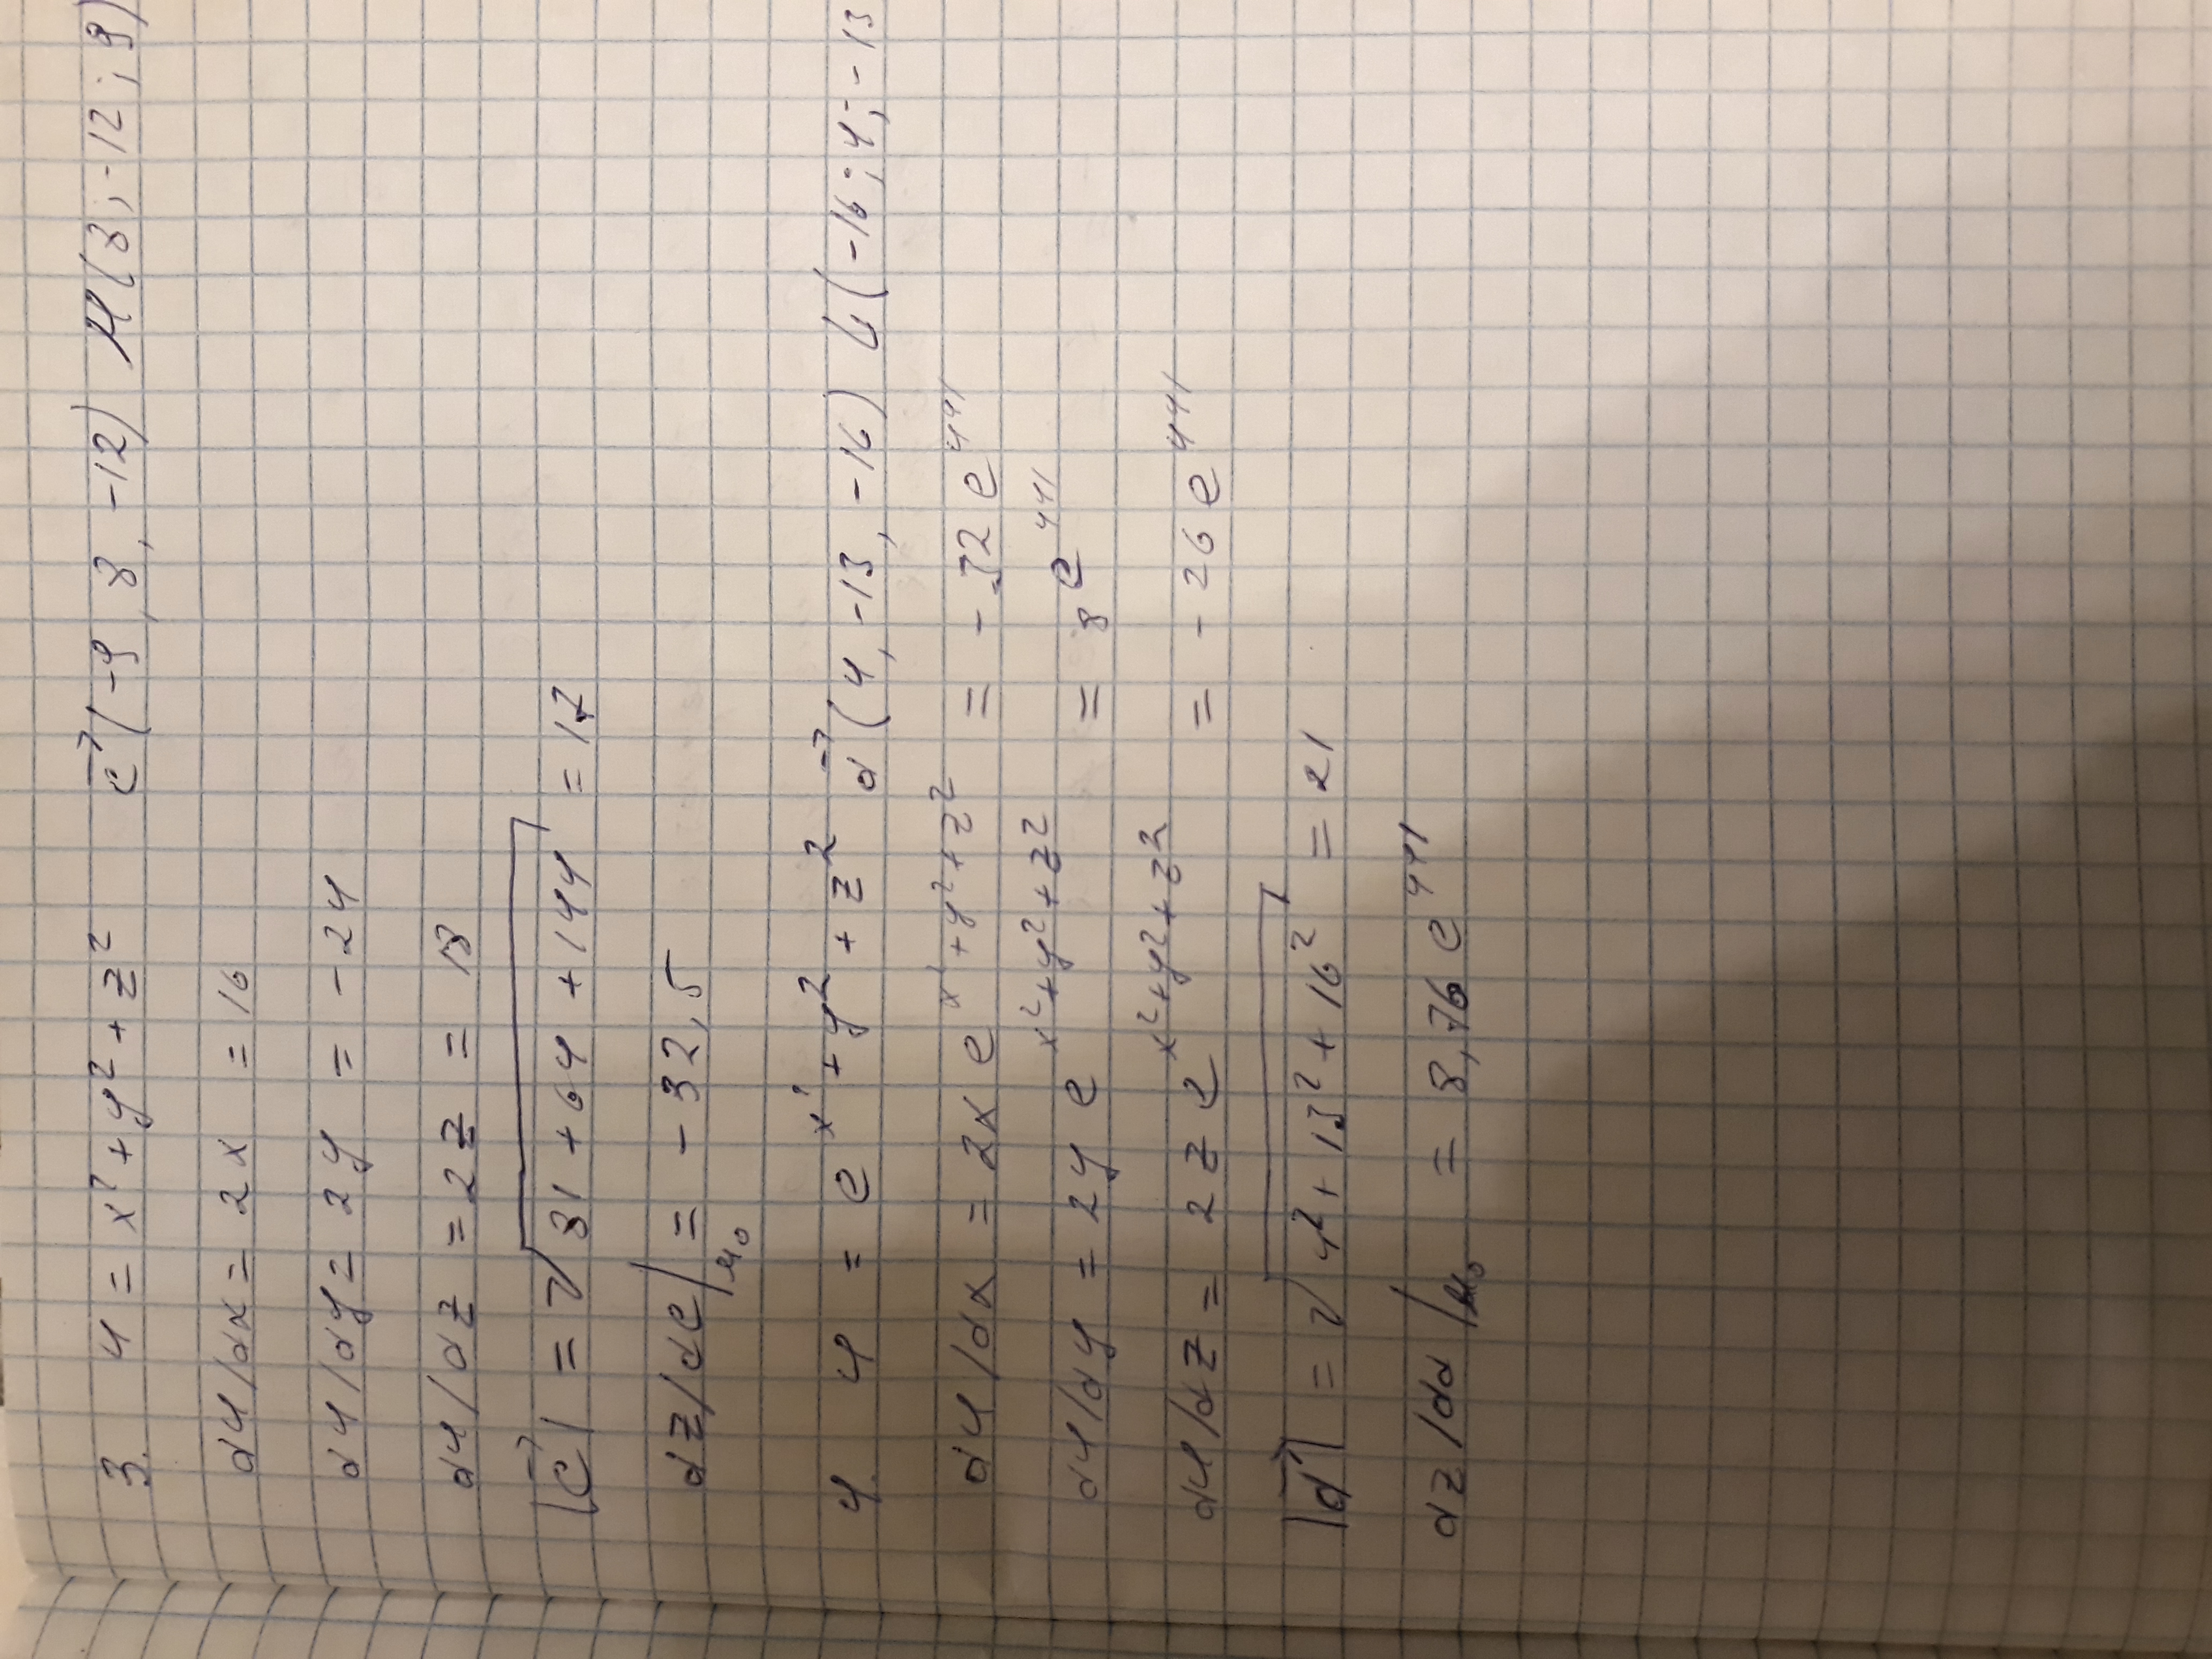 3. u = x² + y² + z² c⃗ (-9, 8, -12) M(8; -12; 9)
du/dx = 2x = 16
du/dy = 2y = -24
du/dz = 2z = 18
|c⃗| = √(81 + 64 + 144) = 17
dz/dc|ₘ₀ = -32,5
4. u = e^(x² + y² + z²) d⃗ (4, -13, -16) L(-16; 4; -13
du/dx = 2x e^(x² + y² + z²) = -32 e^441
du/dy = 2y e^(x² + y² + z²) = 8 e^441
du/dz = 2z e^(x² + y² + z²) = -26 e^441
|d⃗| = √(4² + 13² + 16²) = 21
dz/dd|ₘ₀ = 8,76 e^441